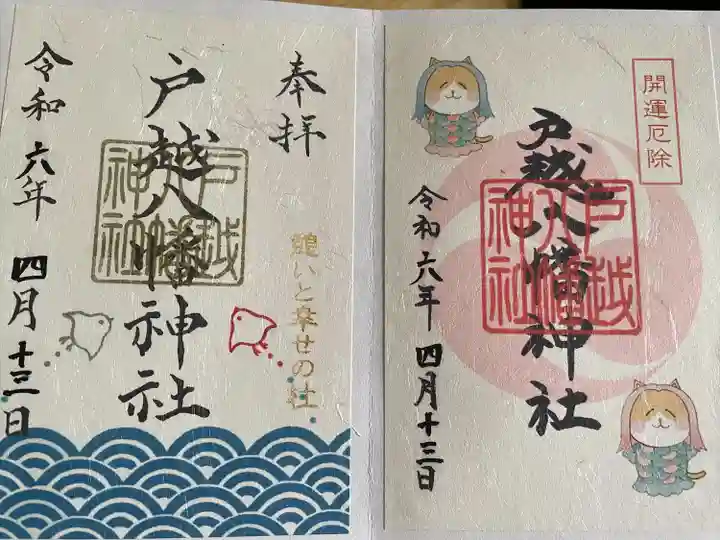 奉拝
戸越八幡神社
戸越
八幡
神社
憩いと幸せの社
令和六年
四月十三日
開運厄除
戸越八幡神社
戸越
八幡
神社
令和六年四月十三日